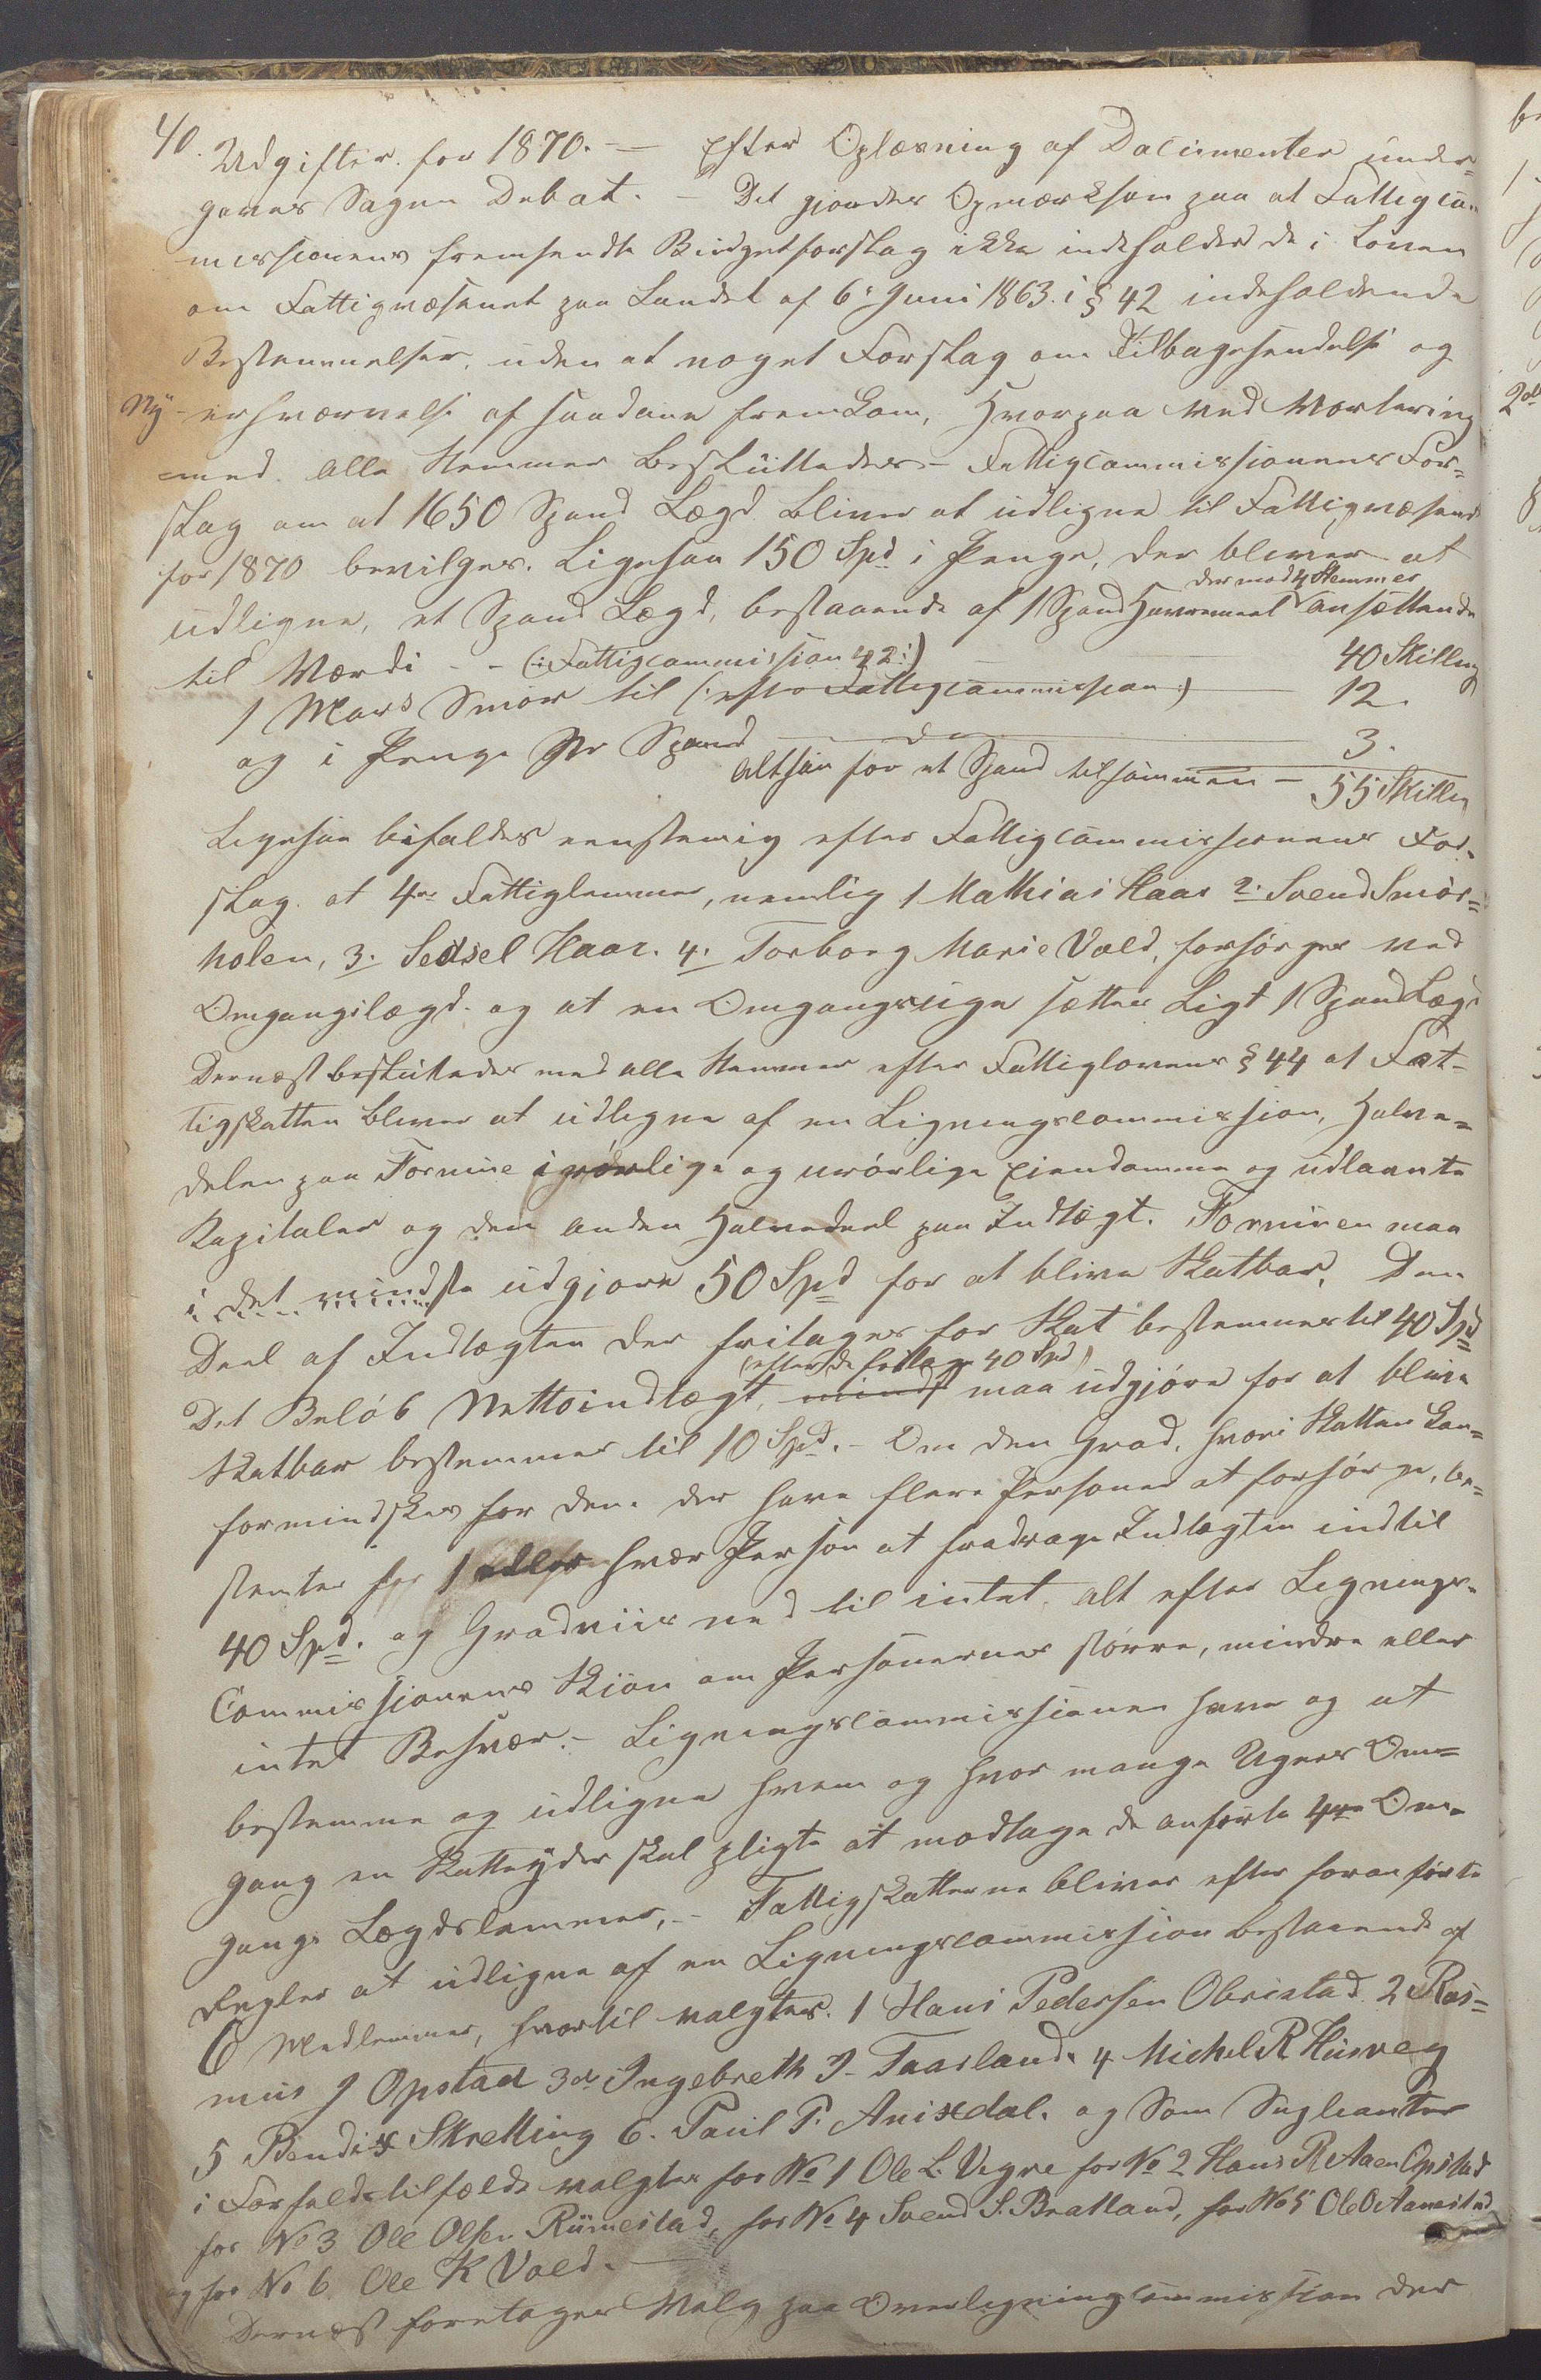 40.
Udgifter for 1870. — Efter Oplæsning af Documenter under-
gaves Sagen Debat. - Det gjordes Opmærksom paa at Fattigcom-
missionens fremsendte Budgetforslag ikke indeholder de i Loven
om Fattigvæsenet paa Landet af 6te Juni 1863 i § 42 indeholdende
Bestemmelser, uden at noget Forslag om Tilbagesendelse og
Ny-erhværvelse af saadane fremkom, Hvorpaa ved Wortering
med alle Stemmer Besluttedes - Fattigcommissionens For-
slag om at 1650 Spand Lægd bliver at udligne til Fattigvæsenet
for 1870 bevilges. Ligesaa 150 Spd i Penge, der bliver at
udligne, et Spand Lægd, bestaaende af 1 Spand Havremeel der med 4 Stemmer ansættende
til Værdi - - (: Fattigcommission 42 :) 40 Skilling
1 Mark Smør til (: efter Fattigcommission :) — 12.
og i Penge Pr Spand — do — 3.
Altsaa for et Spand tilsammen — 55 Skilling
Ligesaa bifaldes eenstemig efter Fattigcommissionens For-
slag at 4re Fattiglemmer, nemlig 1 Mathias Haar 2. Svend Smør-
holen, 3. Sedsel Haar. 4. Torborg Marie Vold, forsørges ved
Omgangslægd og at en Omgangsuge sættes Ligt 1 Spand Lægd
Dernæst besluttedes med alle Stemmer efter Fattiglovens § 44 at Fat-
tigskatten bliver at udligne af en Ligningscommission, Halve-
delen paa Formue i rørlige og urørlige Eiendomme og udlaante
Kapitaler og den anden Halvedeel paa Indtægt. Formuen maa
i det mindste udgjøre 50 Spd for at blive Skatbar. Den
Deel af Indtægten der fritages for Skat bestemmes til 40 Spd
Det Beløb Nettoindtægt, (efter de fritagne 40 Spd) mindst maa udgjøre for at blive
Skatbar bestemmes til 10 Spd. - Om den Grad, hvori Skatten kan
formindskes for dem der have flere Personer at forsørge, be-
stemtes for 1 eller hvær Person at fradrage Indtægten indtil
40 Spd. og Gradviis ned til intet alt efter Lignings-
Commissionens Skjøn om Personernes større, mindre eller
intet Besvær. - Ligningscommissionen have og at
bestemme og udligne hvem og hvor mange Ugers Om-
gang en Skatteyder skal pligte at modtage de anførte 4re Om-
gangs Lægdslemmer, - Fattigskatterne bliver efter foranførte
Regler at udligne af en Ligningscommission bestaaende af
6 Medlemmer, hvortil valgtes. 1 Hans Pedersen Obristad 2 Ras-
mus J Opstad 3de Ingebreth J. Taarland. 4 Michel R Husveg
5 Bendix Skretting 6. Paul P. Anisdal. og Som Supleanter
i Forfaldstilfælde valgtes for No 1 Ole L. Vigre for No 2 Hans R Aaen Opstad
for No 3 Ole Olsen Rümestad, for No 4 Svend S. Bratland, for No 5 Ole O Aanestad
og for No 6 Ole K Vold. —
Dernæst foretages Valg paa Overligningscommission der